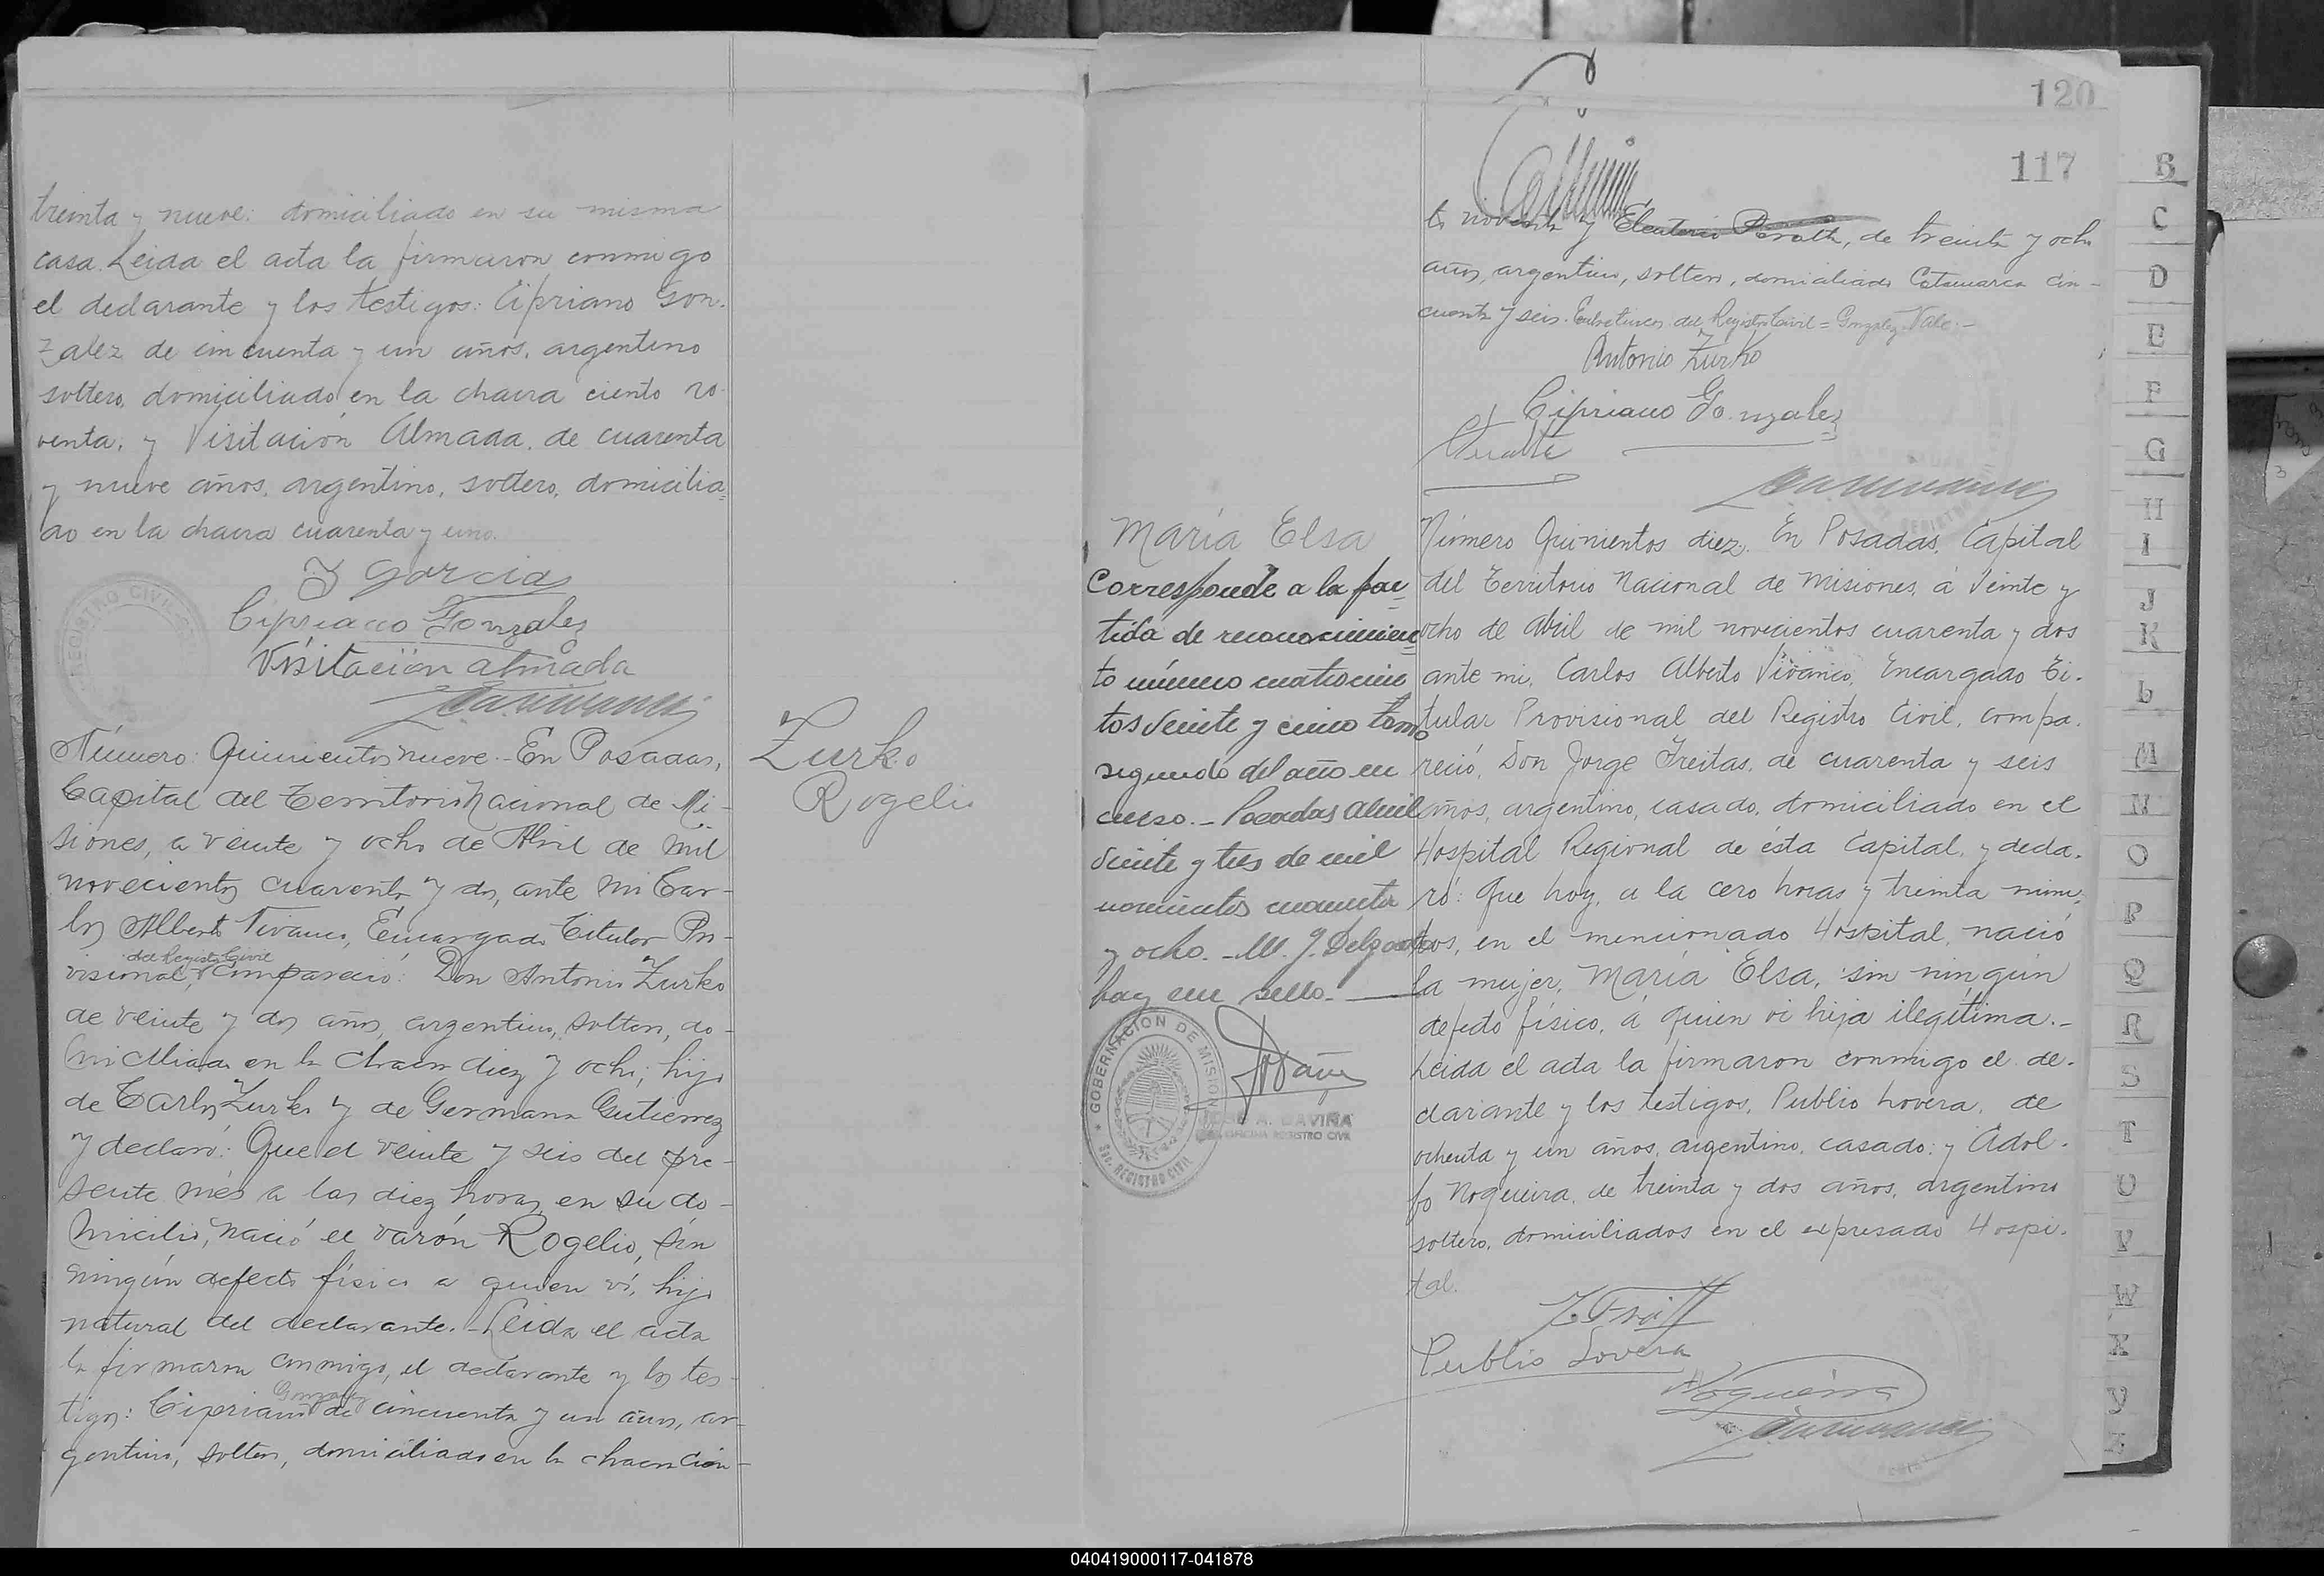 treinta y nueve: domiciliado en su misma
casa. Leida el acta la firmaron conmigo
el declarante y los testigos: Cipriano Gon-
zalez de cincuenta y un años, argentino
soltero, domiciliado en la chacra ciento no-
venta, y Visitación Almada, de cuarenta
y nueve años, argentino, soltero, domicilia-
do en la chacra cuarenta y uno.
J Garcia
Cipriano Gonzales
Visitación almada
REGISTRO CIVIL
Número: Quinientos nueve.- En Posadas,
Capital del Territorio Nacional de Mi-
siones, a veinte y ocho de Abril de mil
novecientos cuarenta y dos, ante mi Car-
los Alberto Vivanco, Encargado Titular Pro-
del Registro Civil
visional, compareció: Don Antonio Zurko
de veinte y dos años, argentino, soltero, do-
miciliado en la chacra diez y ocho; hijo
de Carlos Zurko y de Germana Gutierrez
y declaró: Que el veinte y seis del pre-
sente mes a las diez horas en su do-
micilio, nació el varón Rogelio, sin
ningún defecto físico a quien ví, hijo
natural del declarante.- Leida el acta
la firmaron conmigo, el declarante y los tes-
Gonzalez
tigos: Cipriano de cincuenta y un años, ar-
gentino, soltero, domiciliado en la chacra cien-
Zurko
Rogelio
120
117
to noventa y Eleuterio Peralta, de treinta y ocho
años, argentino, soltero, domiciliado Catamarca cin-
cuenta y seis. Entrelineas: del Registro Civil = Gonzalez. Vale.-
Antonio Zurko
Cipriano Gonzalez
Peralta
María Elsa
Corresponde a la par-
tida de reconocimien-
to número cuatrocien
tos veinte y cinco tomo
segundo del año en
curso.- Posadas Abril
veinte y tres de mil
novecientos cuarenta
y ocho.- M. J. Delgado
hay un sello.
GOBERNACION DE MISIONES
Sec. REGISTRO CIVIL
JOSE A. DAVIÑA
OFICINA REGISTRO CIVIL
Número Quinientos diez. En Posadas, Capital
del Territorio Nacional de Misiones, á veinte y
ocho de Abril de mil novecientos cuarenta y dos
ante mi, Carlos Alberto Vivanco, Encargado Ti-
tular Provisional del Registro Civil, compa-
reció, Don Jorge Freitas, de cuarenta y seis
años, argentino, casado, domiciliado en el
Hospital Regional de ésta Capital, y decla-
ró: Que hoy, a la cero horas y treinta minu-
tos, en el mencionado Hospital, nació
la mujer, María Elsa, sin ningún
defecto físico, á quien vi hija ilegítima.-
Leida el acta la firmaron conmigo el de-
clarante y los testigos, Publio Lovera, de
ochenta y un años, argentino, casado: y Adol-
fo Nogueira, de treinta y dos años, argentino
soltero, domiciliados en el expresado Hospi-
tal.
Publio Lovera
Nogueira
B
C
D
E
F
G
H
I
J
K
L
M
N
O
P
Q
R
S
T
U
V
W
X
Y
Z
040419000117-041878